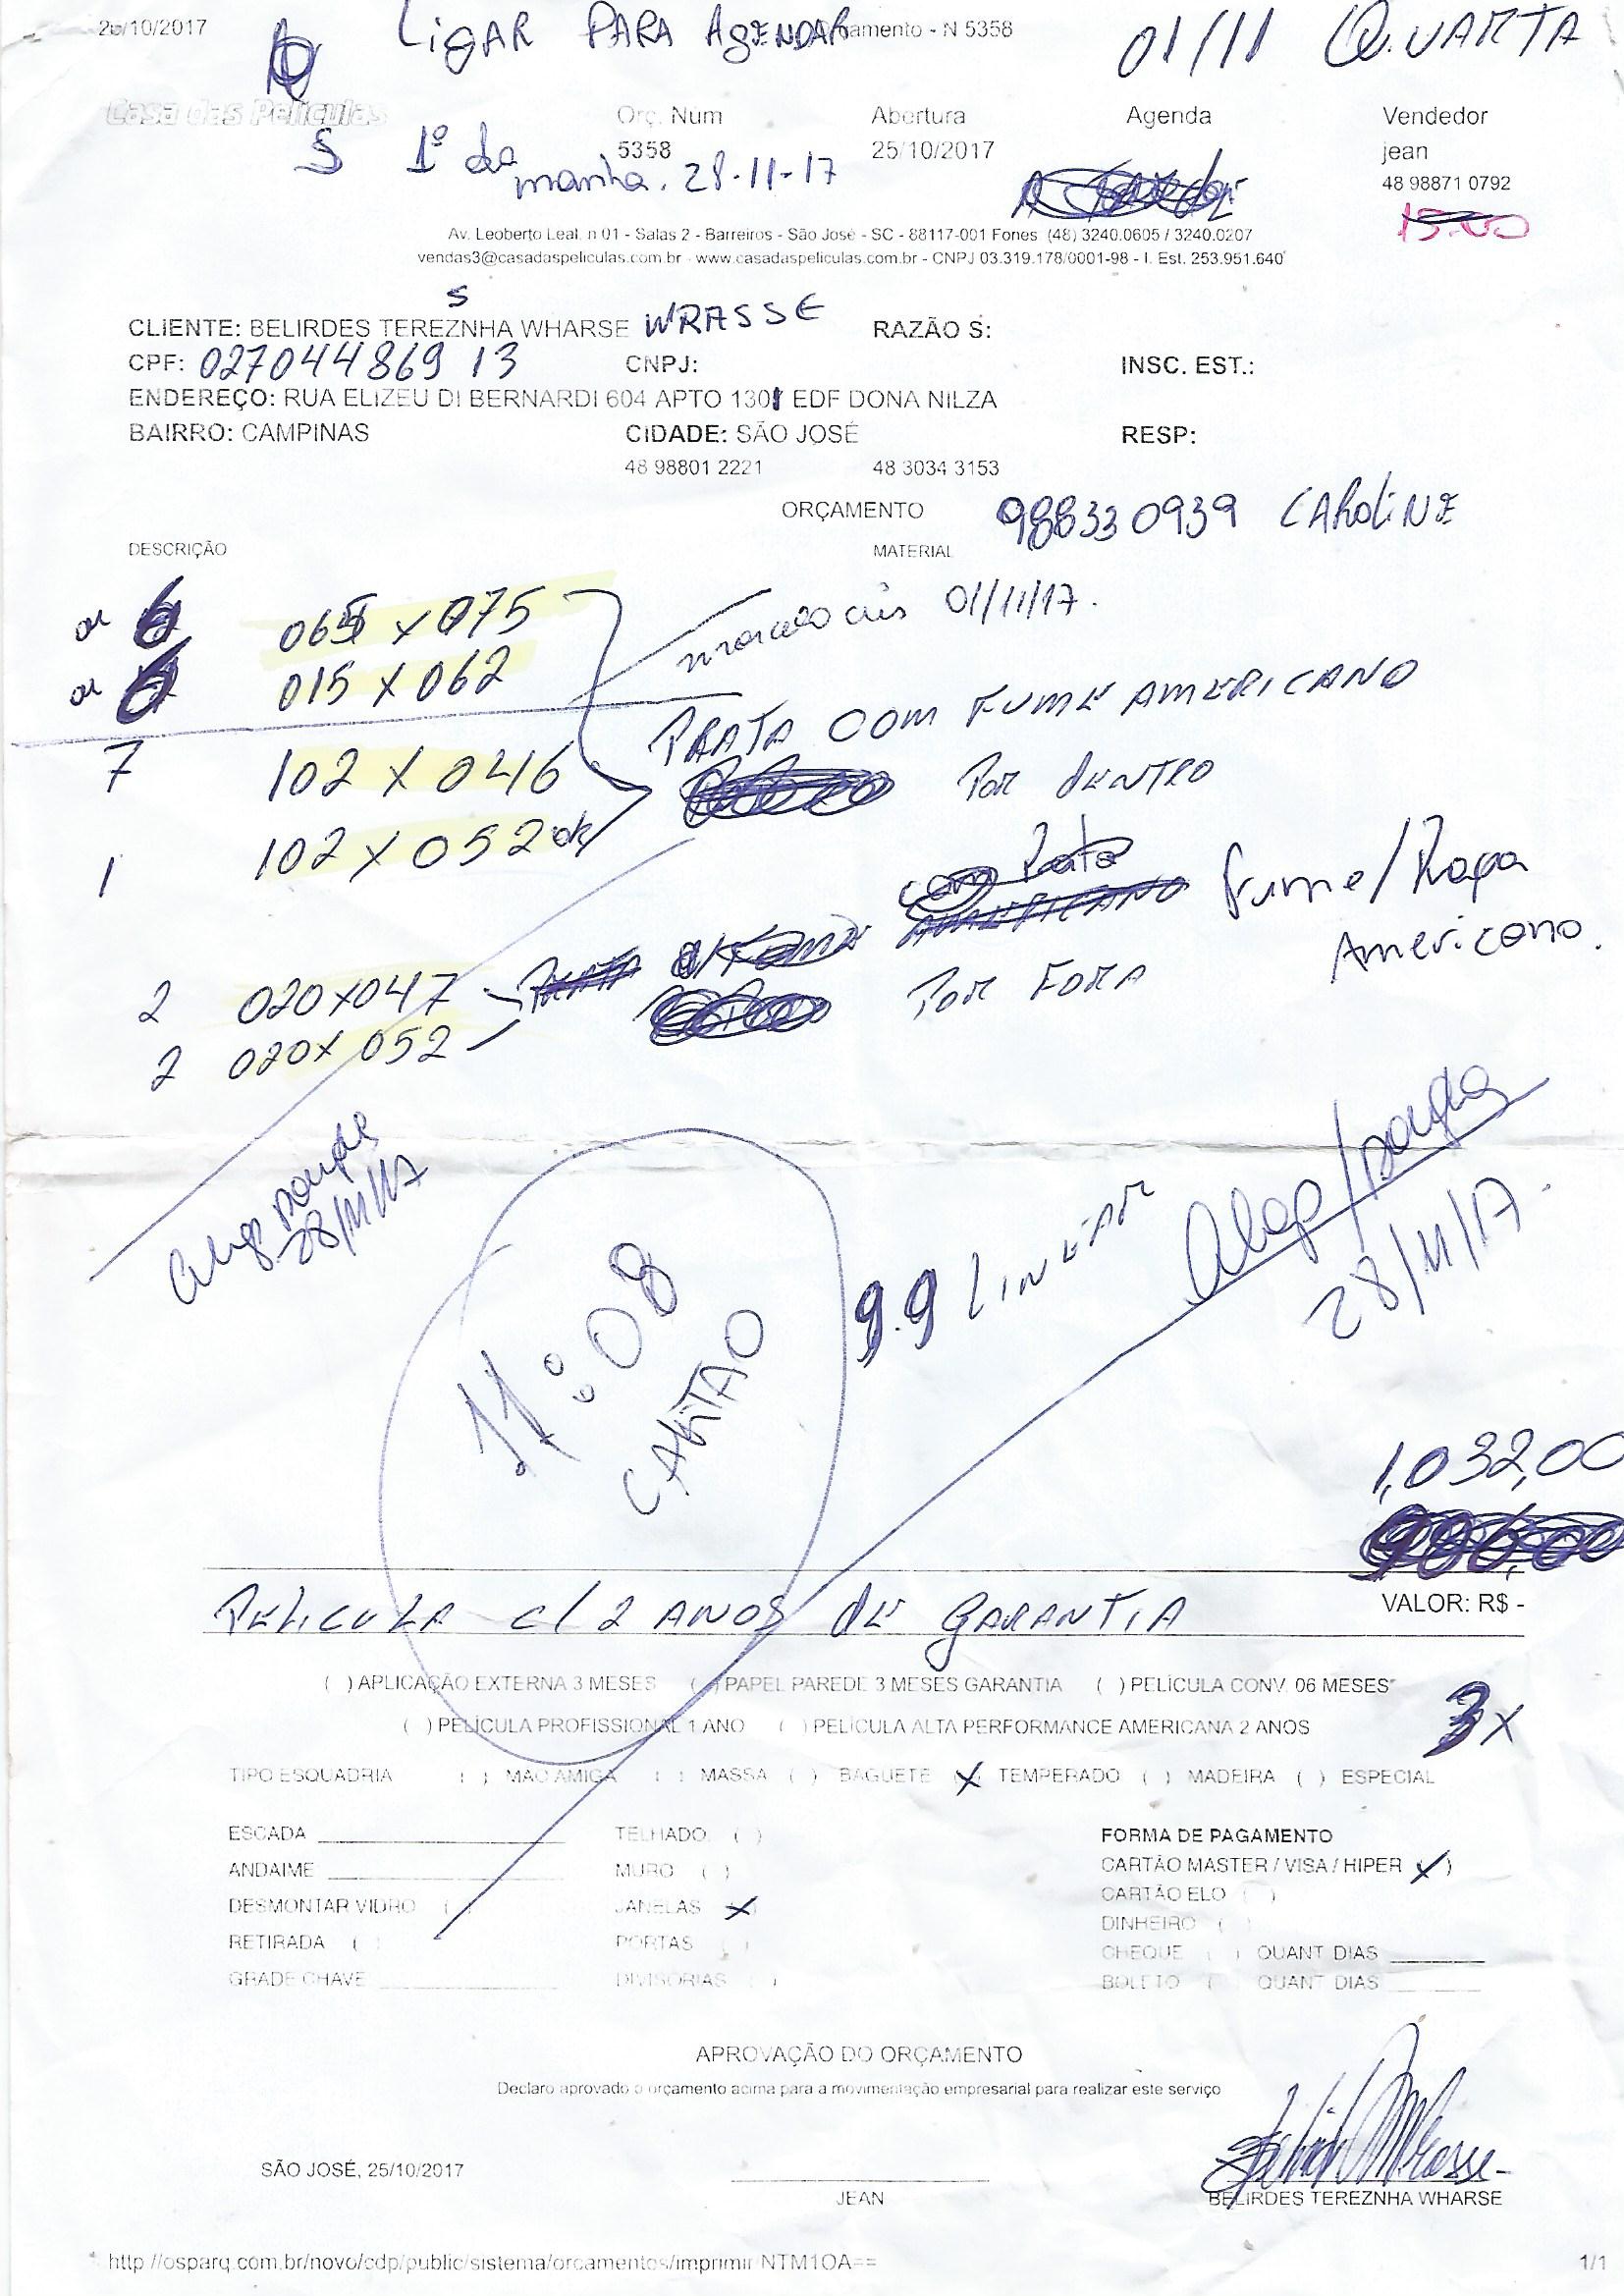 25/10/2017 LIGAR PARA AGENDAR amento - N 5358 01/11 QUARTA
Casa das Películas
Orç. Num Abertura Agenda Vendedor
5358 25/10/2017 jean
S 1º da manha. 28-11-17
48 98871 0792
15:00
Av. Leoberto Leal, n 01 - Salas 2 - Barreiros - São José - SC - 88117-001 Fones (48) 3240.0605 / 3240.0207
vendas3@casadaspeliculas.com.br - www.casadaspeliculas.com.br - CNPJ 03.319.178/0001-98 - I. Est. 253.951.640
S
CLIENTE: BELIRDES TEREZNHA WHARSE WRASSE RAZÃO S:
CPF: 027044869 13 CNPJ: INSC. EST.:
ENDEREÇO: RUA ELIZEU DI BERNARDI 604 APTO 1301 EDF DONA NILZA
BAIRRO: CAMPINAS CIDADE: SÃO JOSÉ RESP:
48 98801 2221 48 3034 3153
ORÇAMENTO 988330939 CAROLINE
DESCRIÇÃO MATERIAL
6 065 x 075 01/11/17.
6 015 x 062
PRATA COM FUME AMERICANO
7 102 x 046 POR DENTRO
1 102 x 052 ok
com Prata
AMERICANO fume/Prata
Americano.
2 020x047 PRATA POR FORA
2 020x 052
28/11/17
28/11/17.
9.9 LINEAR
11:08
CARTAO
1,032,00
986,00
PELICULA c/ 2 ANOS DE GARANTIA VALOR: R$ -
( ) APLICAÇÃO EXTERNA 3 MESES ( ) PAPEL PAREDE 3 MESES GARANTIA ( ) PELÍCULA CONV. 06 MESES
( ) PELÍCULA PROFISSIONAL 1 ANO ( ) PELÍCULA ALTA PERFORMANCE AMERICANA 2 ANOS 3x
TIPO ESQUADRIA ( ) MÃO AMIGA ( ) MASSA ( ) BAGUETE (X) TEMPERADO ( ) MADEIRA ( ) ESPECIAL
ESCADA TELHADO ( ) FORMA DE PAGAMENTO
ANDAIME MURO ( ) CARTÃO MASTER / VISA / HIPER (X)
DESMONTAR VIDRO ( ) JANELAS (X) CARTÃO ELO ( )
RETIRADA ( ) PORTAS ( ) DINHEIRO ( )
GRADE CHAVE DIVISÓRIAS ( ) CHEQUE ( ) QUANT DIAS
BOLETO ( ) QUANT DIAS
APROVAÇÃO DO ORÇAMENTO
Declaro aprovado o orçamento acima para a movimentação empresarial para realizar este serviço
SÃO JOSÉ, 25/10/2017
JEAN BELIRDES TEREZNHA WHARSE
http://osparq.com.br/novo/cdp/public/sistema/orcamentos/imprimir/NTM1OA== 1/1